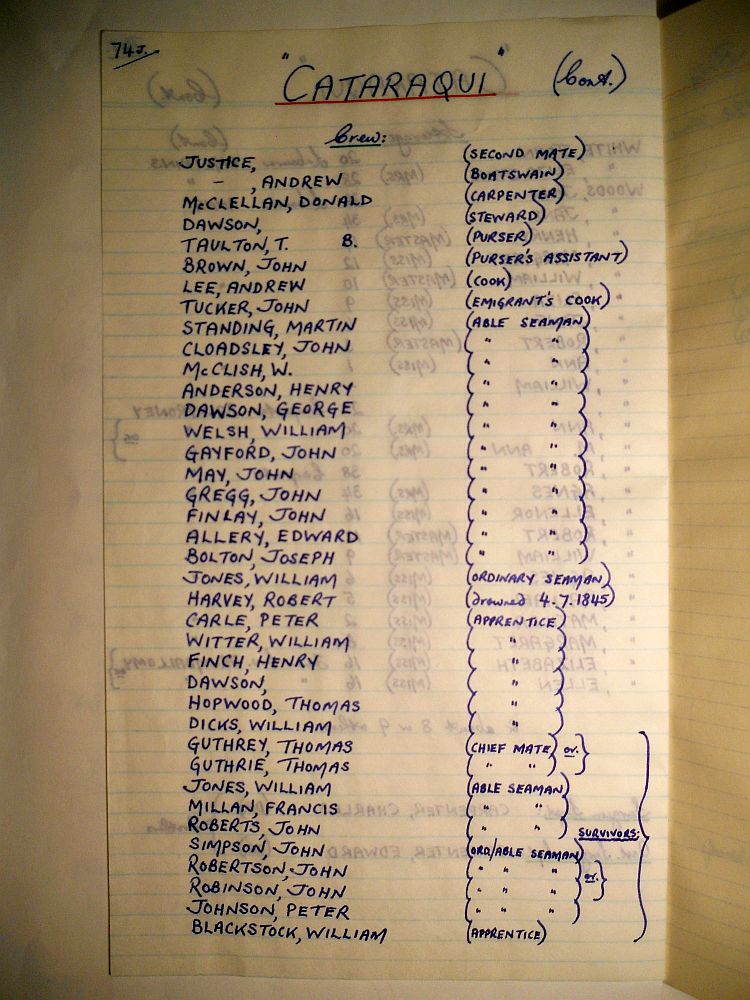 74J.
"CATARAQUI" (Cont.)
Crew:
JUSTICE, (SECOND MATE)
— , ANDREW (BOATSWAIN)
McCLELLAN, DONALD (CARPENTER)
DAWSON, (STEWARD)
TAULTON, T. B. (PURSER)
BROWN, JOHN (PURSER'S ASSISTANT)
LEE, ANDREW (COOK)
TUCKER, JOHN (EMIGRANT'S COOK)
STANDING, MARTIN (ABLE SEAMAN)
CLOADSLEY, JOHN ( " " )
McCLISH, W. ( " " )
ANDERSON, HENRY ( " " )
DAWSON, GEORGE ( " " )
WELSH, WILLIAM ( " " )
GAYFORD, JOHN ( " " )
MAY, JOHN ( " " )
GREGG, JOHN ( " " )
FINLAY, JOHN ( " " )
ALLERY, EDWARD ( " " )
BOLTON, JOSEPH ( " " )
JONES, WILLIAM (ORDINARY SEAMAN)
HARVEY, ROBERT (drowned 4.7.1845)
CARLE, PETER (APPRENTICE)
WITTER, WILLIAM ( " )
FINCH, HENRY ( " )
DAWSON, ( " )
HOPWOOD, THOMAS ( " )
DICKS, WILLIAM ( " )
GUTHREY, THOMAS (CHIEF MATE) or. }
GUTHRIE, THOMAS ( " " )
JONES, WILLIAM (ABLE SEAMAN)
MILLAN, FRANCIS ( " " )
ROBERTS, JOHN ( " " ) SURVIVORS:
SIMPSON, JOHN (ORD/ABLE SEAMAN)
ROBERTSON, JOHN ( " " " ) or. }
ROBINSON, JOHN ( " " " )
JOHNSON, PETER ( " " " )
BLACKSTOCK, WILLIAM (APPRENTICE)